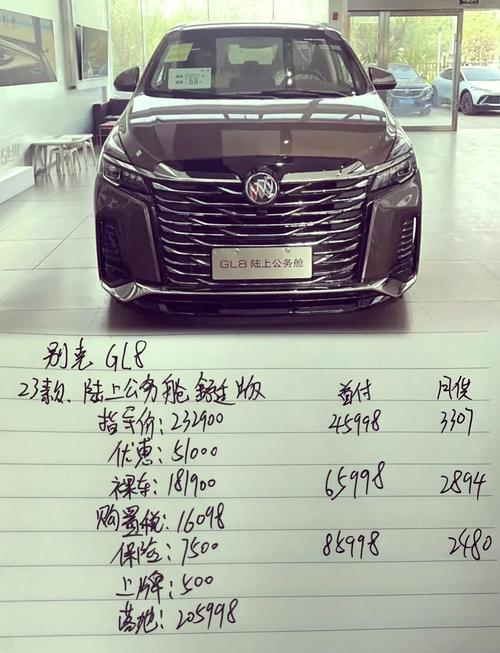 GL8 陆上公务舱
别克 GL8
23款、陆上公务舱 舒适版 首付 月供
指导价: 232900 45998 3307
优惠: 51000
裸车: 181900 65998 2894
购置税: 16098
保险: 7500 85998 2480
上牌: 500
落地: 205998